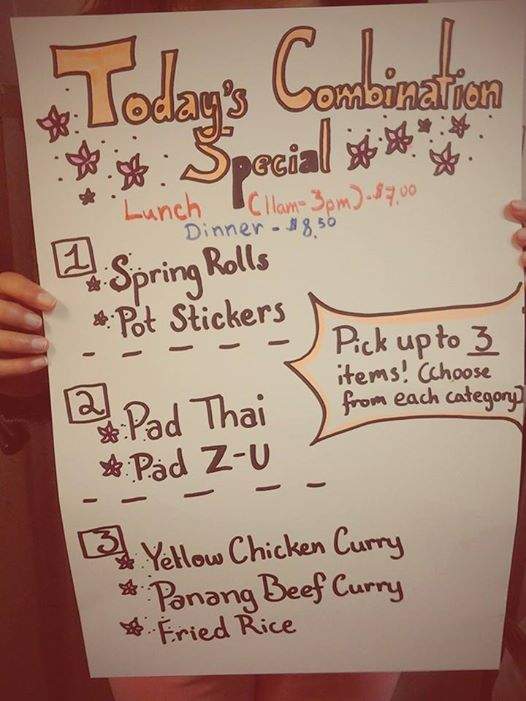 Today's Combination
Special
Lunch (11am-3pm)-$7.00
Dinner - $8.50
1
Spring Rolls
Pot Stickers
Pick up to 3
items! (choose
from each category)
2
Pad Thai
Pad Z-U
3
Yellow Chicken Curry
Panang Beef Curry
Fried Rice